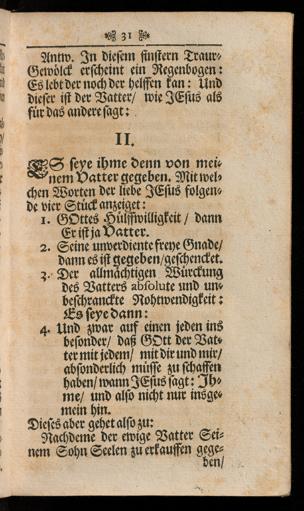 31
Antw. In diesem finstern Traur-
Gewölck erscheint ein Regenbogen:
Es lebt der noch der helffen kan: Und
dieser ist der Vatter/ wie JEsus als
für das andere sagt:
II.
ES seye ihme denn von mei-
nem Vatter gegeben. Mit wel-
chen Worten der liebe JEsus folgen-
de vier Stück anzeiget:
1. GOttes Hülffwilligkeit / dann
Er ist ja Vatter.
2. Seine unverdiente freye Gnade/
dann es ist gegeben/geschencket.
3. Der allmächtigen Würckung
des Vatters absolute und un-
beschranckte Nohtwendigkeit:
Es seye dann:
4. Und zwar auf einen jeden ins
besonder/ daß GOtt der Vat-
ter mit jedem/ mit dir und mir/
absonderlich müsse zu schaffen
haben/ wann JEsus sagt: Ih-
me/ und also nicht nur insge-
mein hin.
Dieses aber gehet also zu:
Nachdeme der ewige Vatter Sei-
nem Sohn Seelen zu erkauffen gege-
ben/